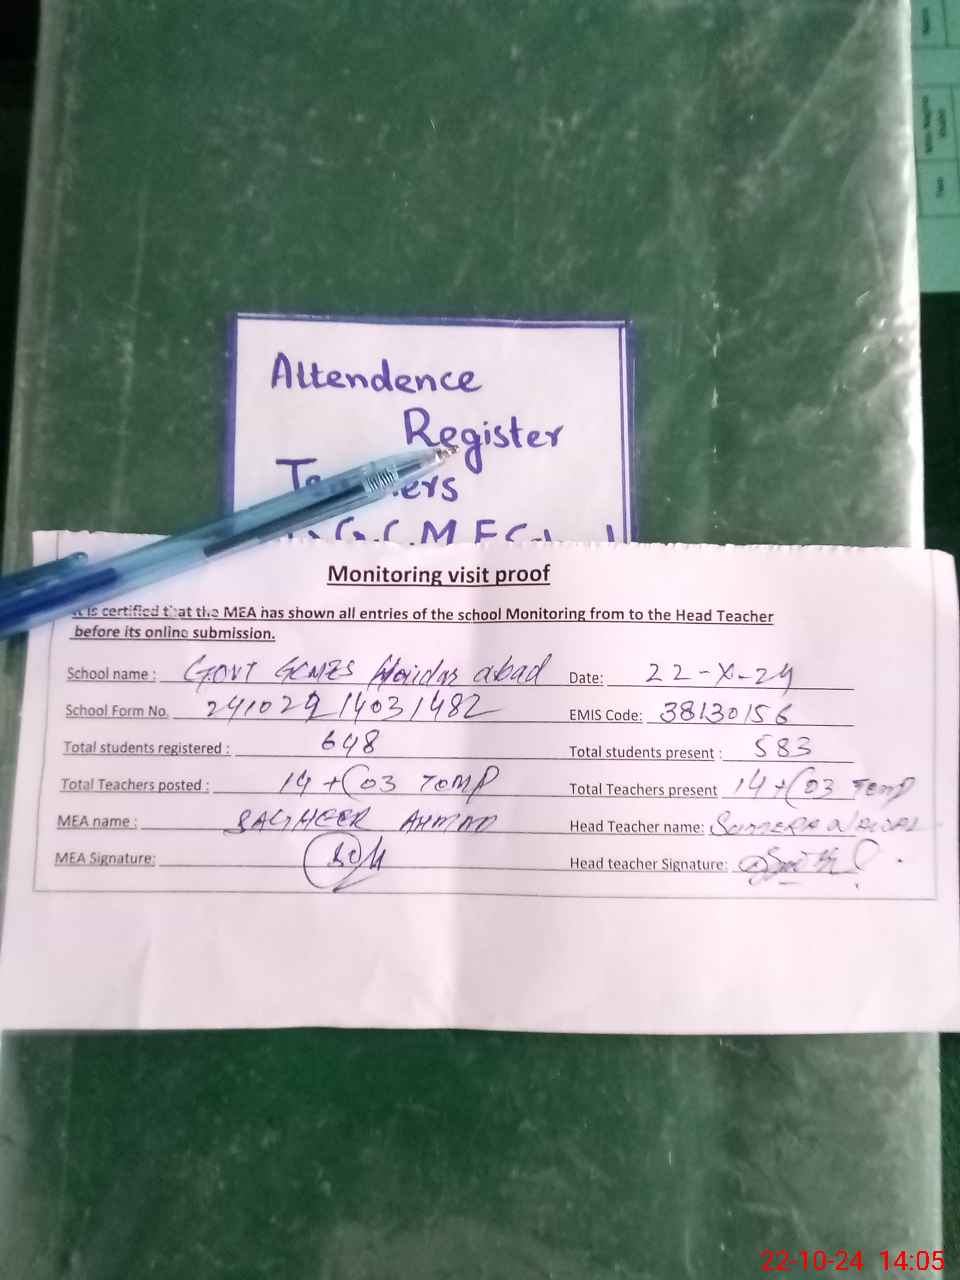 Attendence
Register
G.C.M.E.S
Monitoring visit proof
It is certified that the MEA has shown all entries of the school Monitoring from to the Head Teacher
before its online submission.
School name : GOVT GCMES Haidar abad Date: 22-X-24
School Form No. EMIS Code: 38130156
Total students registered : 648 Total students present : 583
Total Teachers posted : 14 + (03 TEMP Total Teachers present 14 + (03 TEMP
MEA name : SAGHEER AHMAD Head Teacher name:
MEA Signature: Head teacher Signature:
22-10-24 14:05